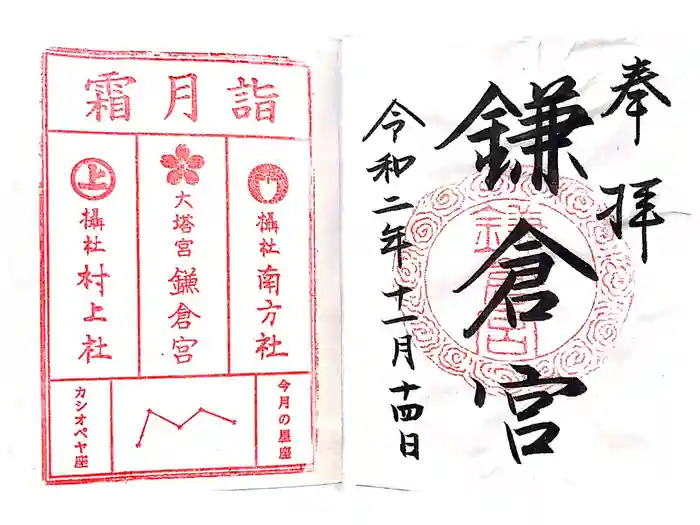 奉拝
鎌倉宮
令和二年十一月十四日
鎌倉宮
霜月詣
上
摂社 南方社
大塔宮 鎌倉宮
攝社 村上社
今月の星座
カシオペヤ座